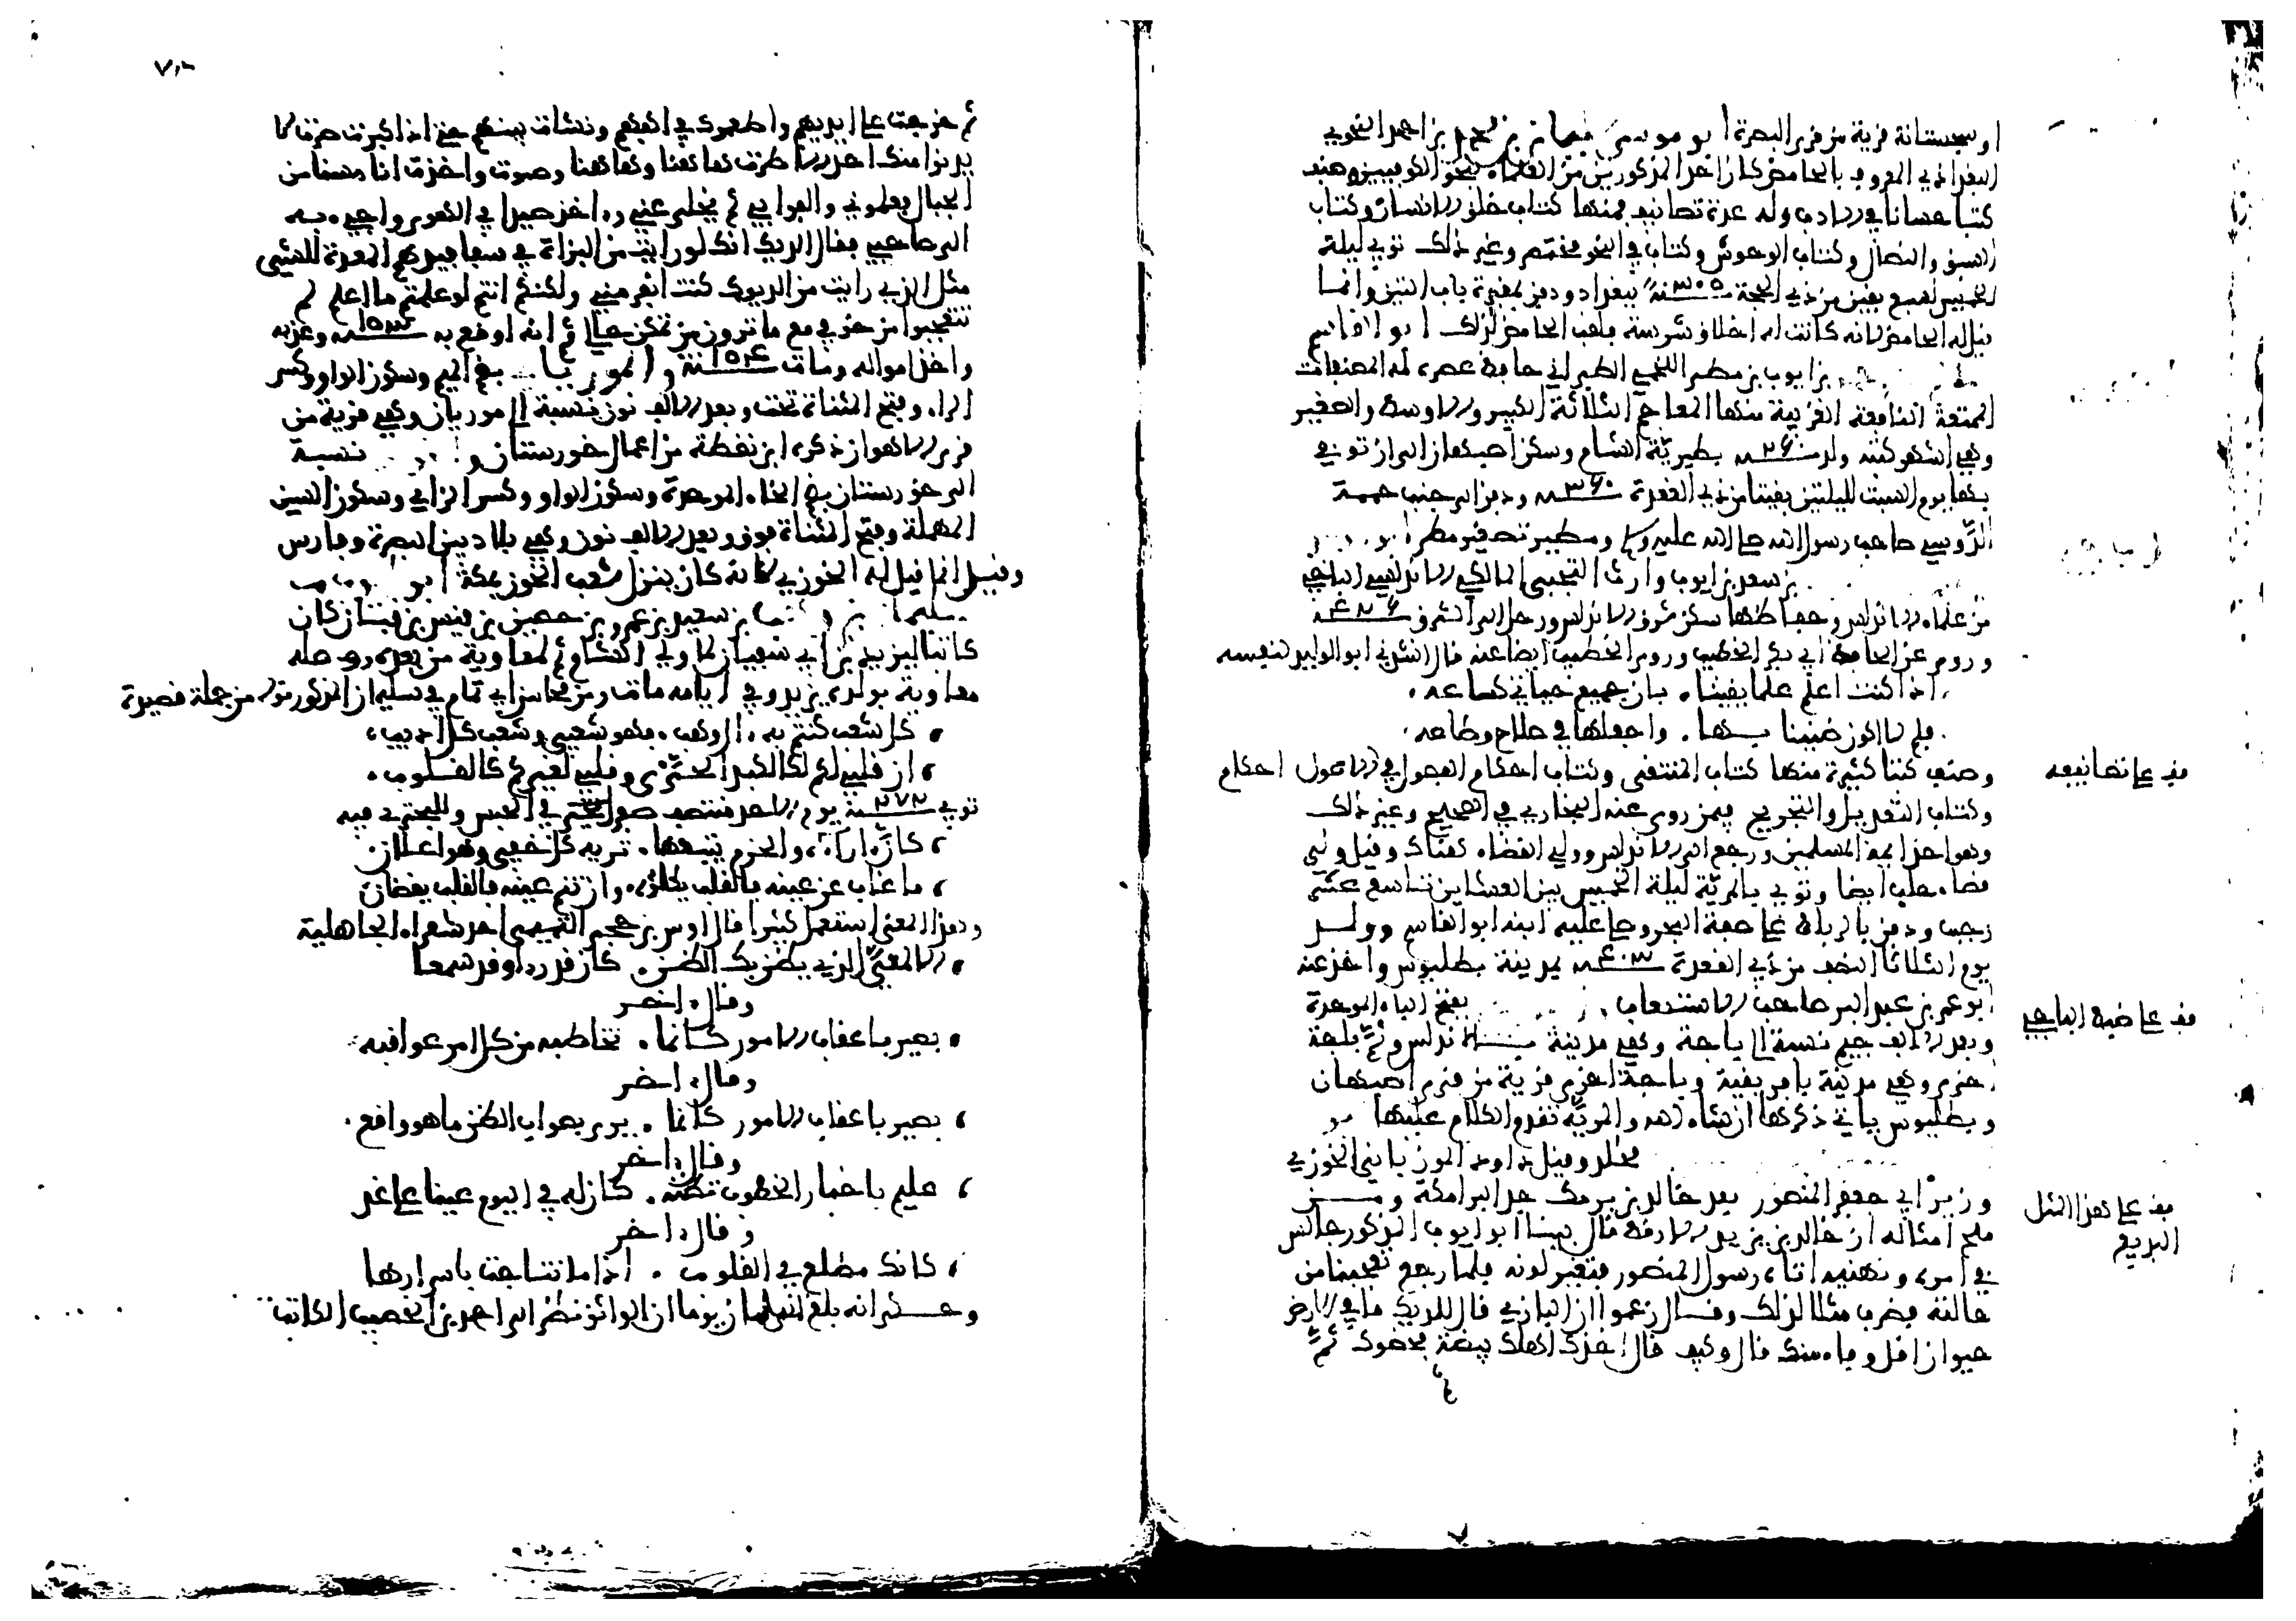 او سجستانة قرية من قرى البصرة ابو موسى سليمان بن محمد بن احمد النحوي
البغداذي المعروف بالحامض كان احد المذكورين من العلماء بنحو الكوفيين وصنف
كتبا حسانا في الادب وله عدة تصانيف فمنها كتاب خلق الانسان وكتاب
السبق والنضال وكتاب الوحوش وكتاب في النحو مختصر وغير ذلك توفي ليلة
الخميس لسبع بقين من ذي الحجة سنة ٣٠٥ ببغداد ودفن بمقبرة باب التبن وانما
قيل له الحامض لانه كانت له اخلاق شرسة فلقب الحامض لذلك ابو القاسم
بن ايوب بن مطير اللخمي الطبراني حافظ عصره له المصنفات
الممتعة النافعة الغريبة منها المعاجم الثلاثة الكبير والاوسط والصغير
وهي اشهر كتبه ولد سنة ٢٦٠ بطبرية الشام وسكن اصبهان الى ان توفي
بها يوم السبت لليلتين بقيتا من ذي القعدة سنة ٣٦٠ ودفن الى جنب حممة
الدوسي صاحب رسول الله صلى الله عليه وسلم ومطير تصغير مطر ابو
بن سعد بن ايوب وارث التجيبي المالكي الاندلسي الباجي
من علماء الاندلس وحفاظها سكن شرق الاندلس ورحل الى الشرق سنة ٤٢٦
وروى عن الحافظ ابي بكر الخطيب وروى الخطيب ايضا عنه قال انشدني ابو الوليد لنفسه
اذا كنت اعلم علما يقينا . بان جميع حياتي كساعه .
فلم لا اكون ضنينا بها . واجعلها في صلاح وطاعه .
وصنف كتبا كثيرة منها كتاب المنتقى وكتاب احكام الفصول في الاصول احكام
قف على تصانيفه
وكتاب التعديل والتجريح فيمن روى عنه البخاري في الصحيح وغير ذلك
وهو احد ايمة المسلمين ورجع الى الاندلس وولي القضاء هناك وقيل ولي
قضاء حلب ايضا وتوفي بالمرية ليلة الخميس بين العشاين تاسع عشر
رجب ودفن بالرباط على ضفة البحر وصلى عليه ابنه ابو القاسم وولد
يوم الثلاثا النصف من ذي القعدة سنة ٤٠٣ بمدينة بطليوس واخذ عنه
ابو عمر بن عبد البر صاحب الاستيعاب بفتح الباء الموحدة
قف على ضبط الباجي
وبعد الالف جيم نسبة الى باجة وهي مدينة بالاندلس وثم باجة
اخرى وهي مدينة بافريقية وباجة اخرى قرية من قرى اصبهان
وبطليوس ياتي ذكرها ان شاء الله والمرية تقدم الكلام عليها
مخلد وقيل داود الموريانى الخوزي
وزير ابي جعفر المنصور بعد خالد بن برمك جد البرامكة ومن
قف على هذا المثل
البديع
ملح امثاله ان خالد بن يزيد الارقط قال بينا ابو ايوب المذكور جالس
في امره ونهيه اتاه رسول المنصور فتغير لونه فلما رجع تعجبنا من
حالته فضرب مثلا لذلك وقال زعموا ان البازي قال للديك ما في الارض
حيوان اقل وفاء منك قال وكيف قال اخذك اهلك بيضة فحضنوك ثم
ثم خرجت على ايديهم واطعموك في اكفهم ونشات بينهم حتى اذا كبرت صرت لا
يدنوا منك احد الا طرت هاهنا وهاهنا وصوت واخذت انا مسنا من
الجبال فعلموني والفوا بي ثم يخلى عني واخذ صيدا في الهوى واجيء به
الى صاحبي فقال الديك انك لو رايت من البزاة في سفافيدهم المعدة للشي
مثل الذي رايت من الديوك كنت انفر مني ولكنكم انتم لو علمتم ما اعلم لم
تتعجبوا من خوفي مع ما ترون من تمكن حالي ثم انه اوقع به سنة ١٥٣ وعذبه
واخذ امواله ومات سنة ١٥٤ والموريانى بضم الميم وسكون الواو وكسر
الراء وفتح المثناة تحت وبعد الالف نون نسبة الى موريان وهي قرية من
قرى الاهواز ذكره ابن نقطة من اعمال خورستان و نسبة
الى خوزستان بضم الخاء الموحدة وسكون الواو وكسر الزاي وسكون السين
المهملة وفتح المثناة فوق وبعد الالف نون وهي بلاد بين البصرة وفارس
وقيل انما قيل له الخوزي لانه كان ينزل شعب الخوز بمكة ابو
سليمان بن وهب بن سعيد بن عمرو بن حصين بن قيس بن قبنان كان
كاتبا ليزيد بن ابي سفيان لما ولي الشام ثم لمعاوية من بعده وصله
معاوية بولده يزيد وفي ايامه مات ومن محاسن ابي تمام في سليمان المذكور قوله من جملة قصيدة
كل شعب كنتم به ال وهب . فهو شعبي وشعب كل اديب .
ان قلبي لكم لكالكبد الحرى وقلبي لغيركم كالقلوب .
توفي سنة ٢٧٢ يوم الاحد منتصف صفر في الحبس وللبحتري فيه
كان اراءه والحزم يتبعها . تريه كل خفي وهو اعلان .
ما غاب عن عينه فالقلب يكلؤه . وان تنم عينه فالقلب يقضان
وهذا المعنى استعمل كثيرا قال اوس بن حجر التميمي احد شعراء الجاهلية
الالمعي الذي يظن بك الظن . كان قد راى وقد سمعا
وقال اخر
بصير باعقاب الامور كانما . تخاطبه من كل امر عواقبه
وقال اخر
بصير باعقاب الامور كانما . يرى بصواب الظن ما هو واقع .
وقال اخر
عليم باخبار الخطوب بظنه . كان له في اليوم عينا على غد
وقال اخر
كانك مطلع في القلوب . اذا ما تناجت باسرارها
وحكى انه بلغ سليمان يوما ان الواثق نظر الى احمد بن الخصيب الكاتب